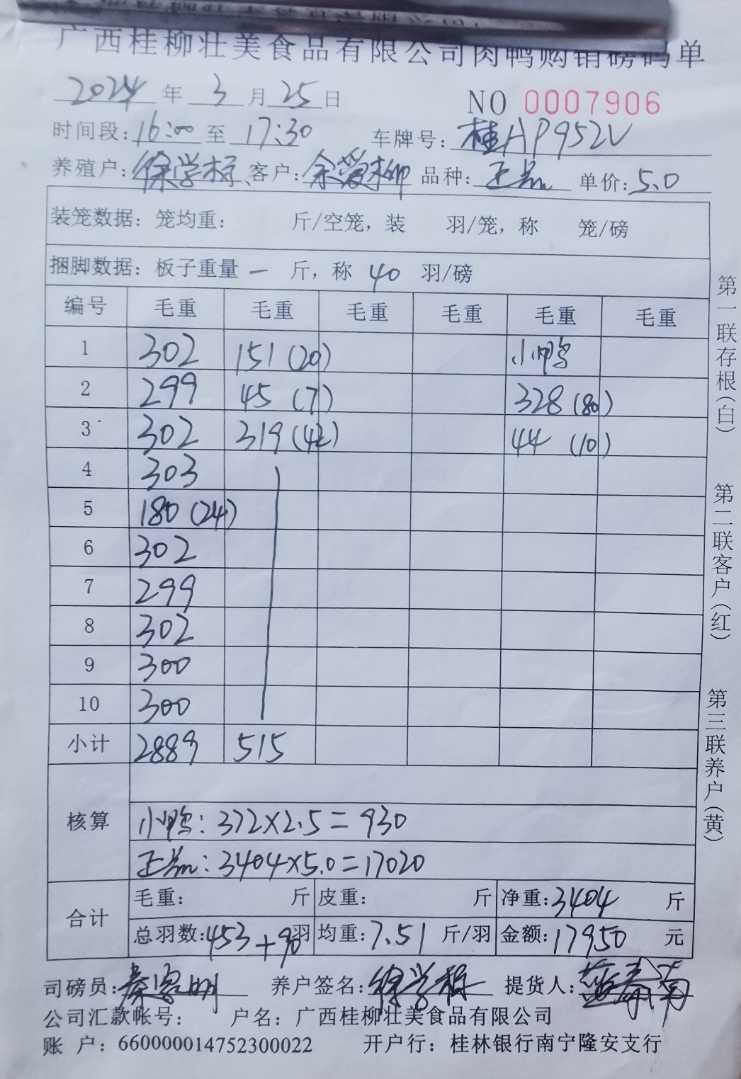 广西桂柳壮美食品有限公司肉鸭购销磅码单
2024 年 3 月 25 日 NO 0007906
时间段:16:00 至 17:30 车牌号:桂AP952V
养殖户:徐学标 客户:余爱柳 品种: 单价:5.0
装笼数据:笼均重: 斤/空笼,装 羽/笼,称 笼/磅
捆脚数据:板子重量 一 斤,称 40 羽/磅
编号 毛重 毛重 毛重 毛重 毛重 毛重
1 302 151(20) 小鸭
2 299 45(7) 328(80)
3 302 319(42) 44(10)
4 303
5 180(24)
6 302
7 299
8 302
9 300
10 300
小计 2889 515
核算
小鸭:372×2.5=930
3404×5.0=17020
合计 毛重: 斤 皮重: 斤 净重:3404 斤
总羽数:453+90羽 均重:7.51 斤/羽 金额:17950 元
司磅员: 养户签名:徐学标 提货人:
公司汇款帐号: 户名:广西桂柳壮美食品有限公司
账 户:660000014752300022 开户行:桂林银行南宁隆安支行
第一联存根(白)
第二联客户(红)
第三联养户(黄)